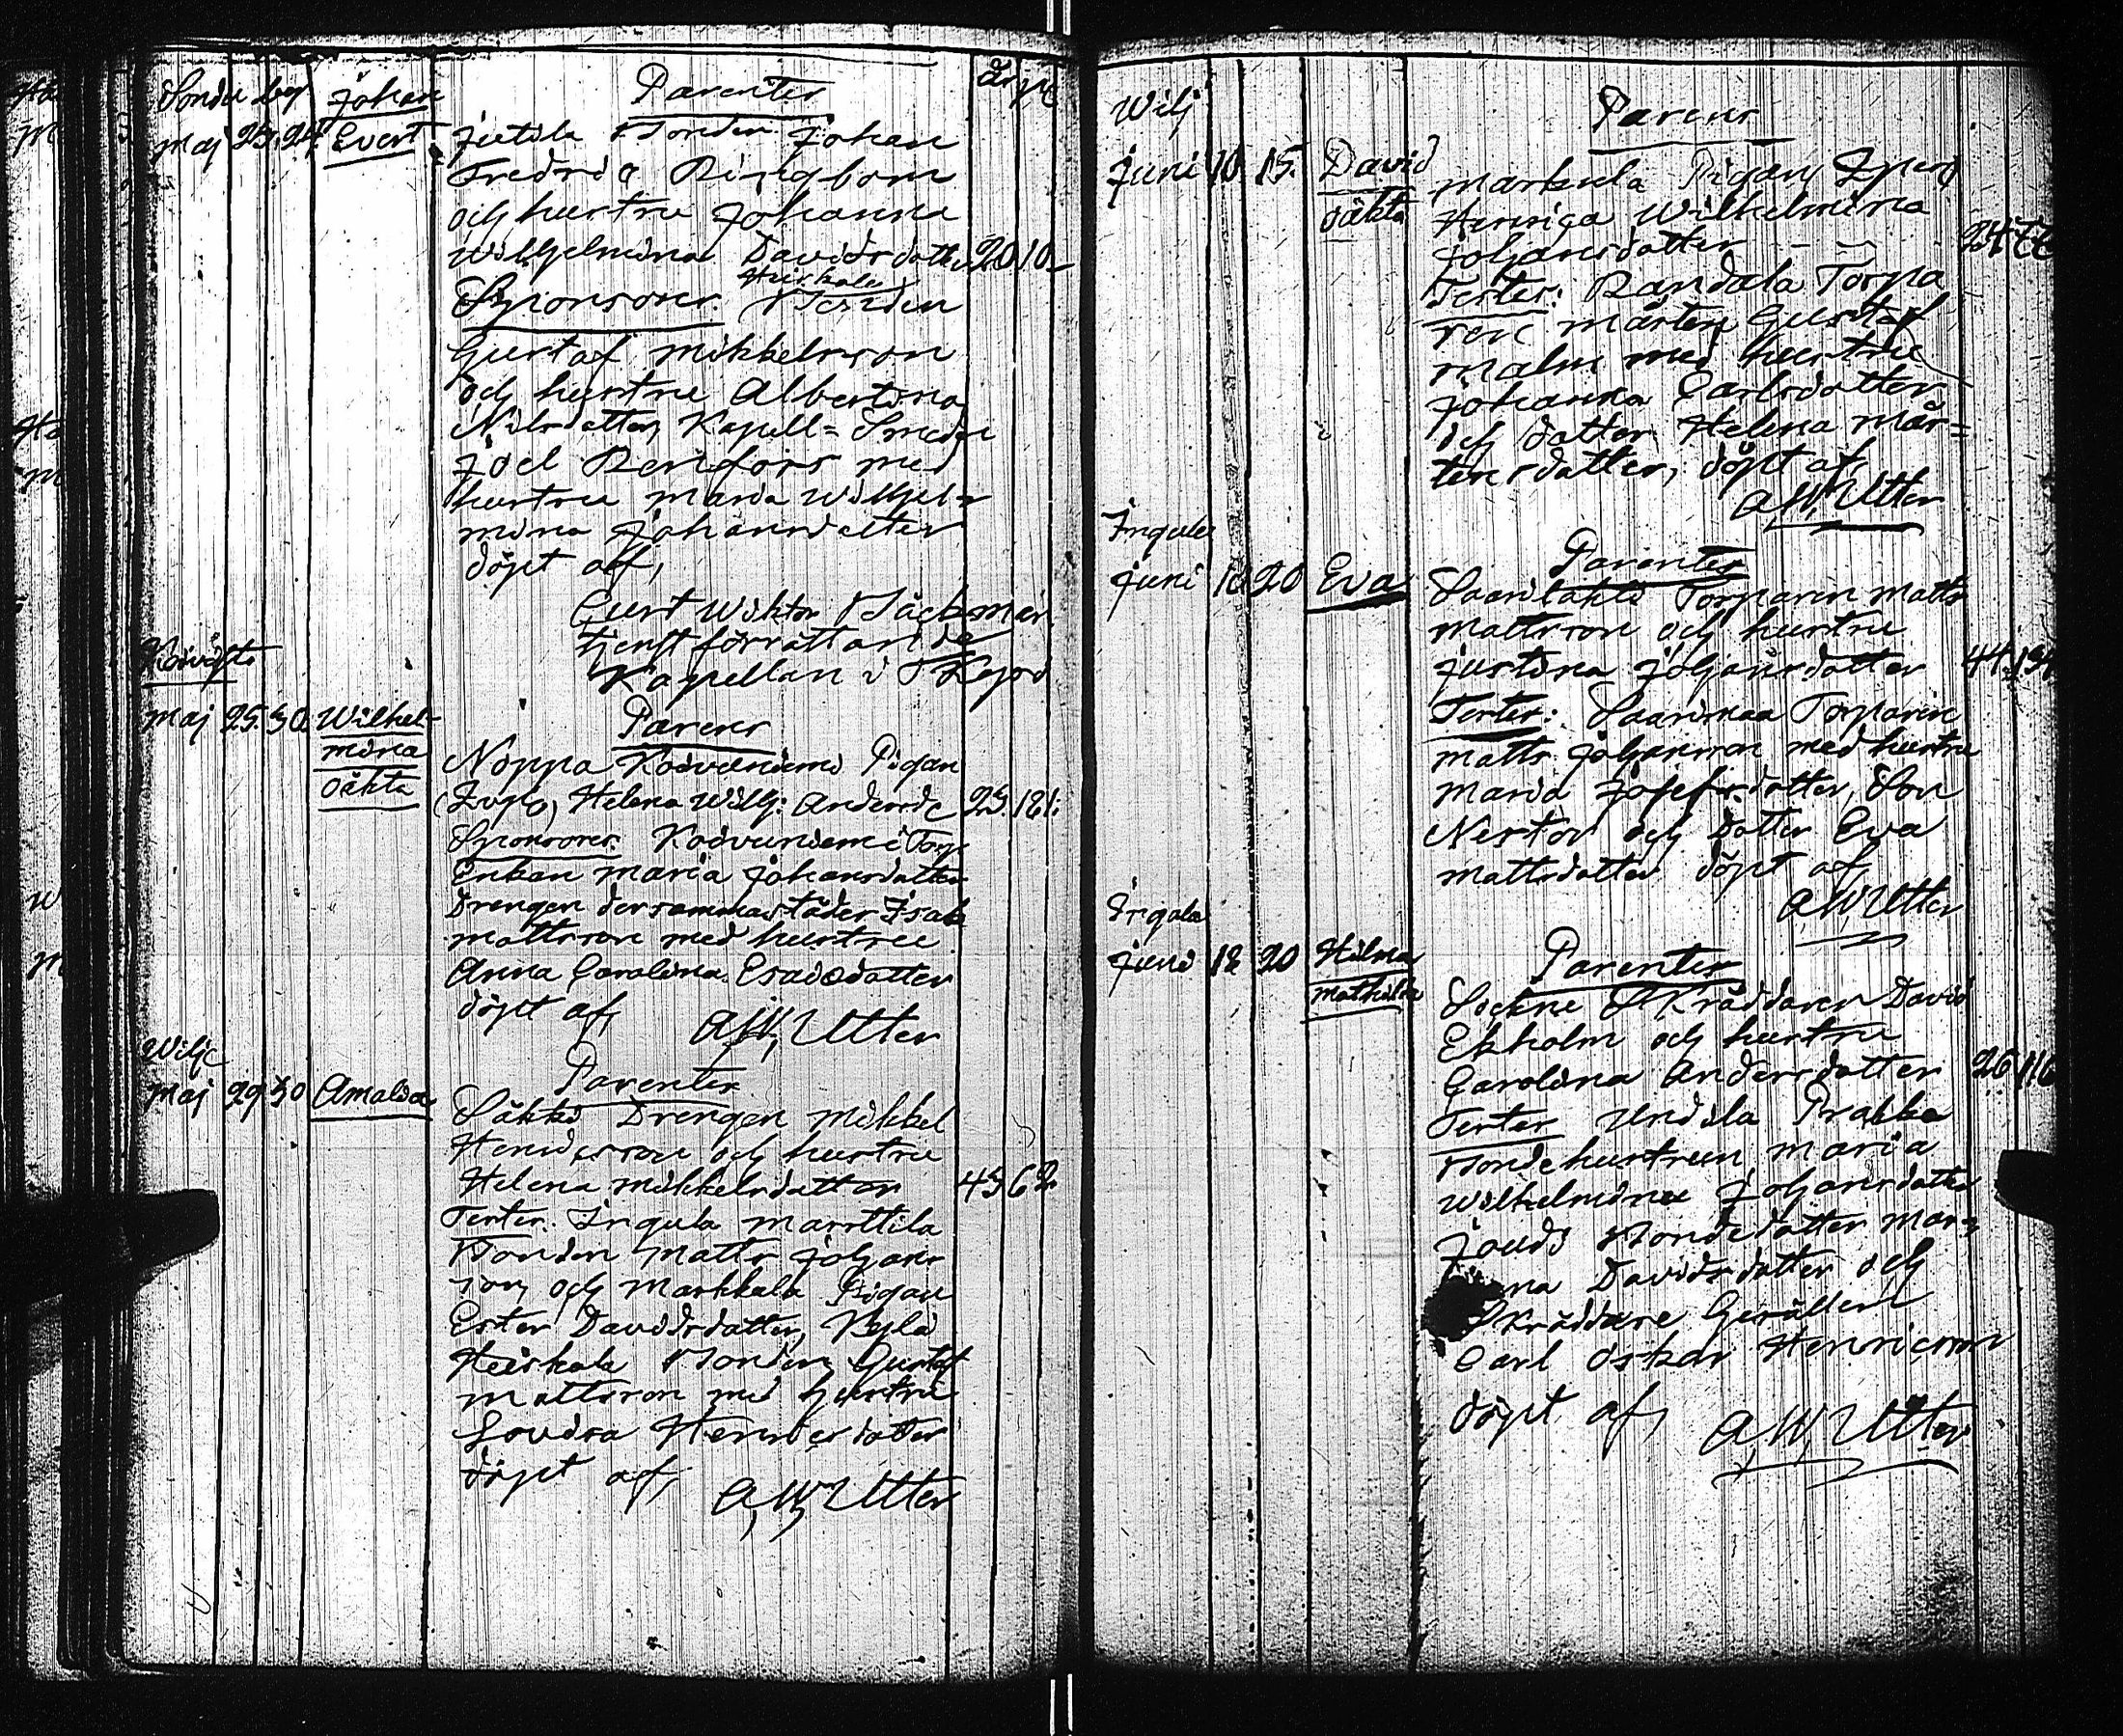 Johan
Parenter
maj 23. 24. Evert
Juttila Bonden Johan
Fredric Ringbom
och hustru Johanna
Wilhelmina Davidsdotter 20 10
Heiskala
Sponsores. Bonden
Gustaf Mikkelsson
och hustru Albertina
Nilsdotter, Kapell=Smeden
Joel Renfors med
hustru Maria Wilhel=
mina Johansdotter
döpt af,
Curt Wiktor Bäckman
tjenstförrättande
Kapellan i
Koivisto
Parens
maj 25. 30. Wilhel-
mina
oäkta
Noppa Koivuniemi Pigan
Helena Wilh: Andersd 23. 181.
Sponsores. Koivuniemi Torp
Enkan Maria Johansdotter
Drengen dersammastädes Isak
Mattsson med hustru
Anna Carolina Esaiædotter
döpt af, A,W, Utter
Parenter
maj 29 30 Amalia
Säkki Drengen Mikkel
Henricsson och hustru
Helena Mikkelsdotter 43 62.
Tester. Ingula Marttila
Bonden Matts Johans
son, och Markkula Pigan
Ester Davidsdotter, Kylä
Heiskala Bonden Gustaf
Mattsson med hustru
Lovisa Henricsdotter
döpt af, A,W, Utter
Wilj
Parens
Juni 10 15. David
oäkta
Markula Pigan
Henrica Wilhelmina
Johansdotter
Tester: Randala Torpa
ren Mårten Gustaf
Malm med hustru
Johanna Carlsdotter
och dotter Helena Mår=
tensdotter, döpt af,
A,W, Utter
Ingula
Parenter
Juni 20 Eva
Saarilahti Torparen Matts
Mattsson och hustru
Justina Johansdotter
Tester: Saarimaa Torparen
Matts Johansson med hustru
Maria Josefsdotter, Son
Nestor och dotter Eva
Mattsdotter döpt af
A W Utter
Ingula
Parenter
Juni 18 20 Hilma
Mathilda
Sockne Skräddaren David
Ekholm och hustru
Carolina Andersdotter 26 116
Tester Undila Prakka
Bondehustrun Maria
Wilhelmina Johansdotter
Jouds Bondedotter Mar=
Davidsdotter och
Skräddare Gesällen
Carl Oskar Henricsson
döpt af, A,W, Utter